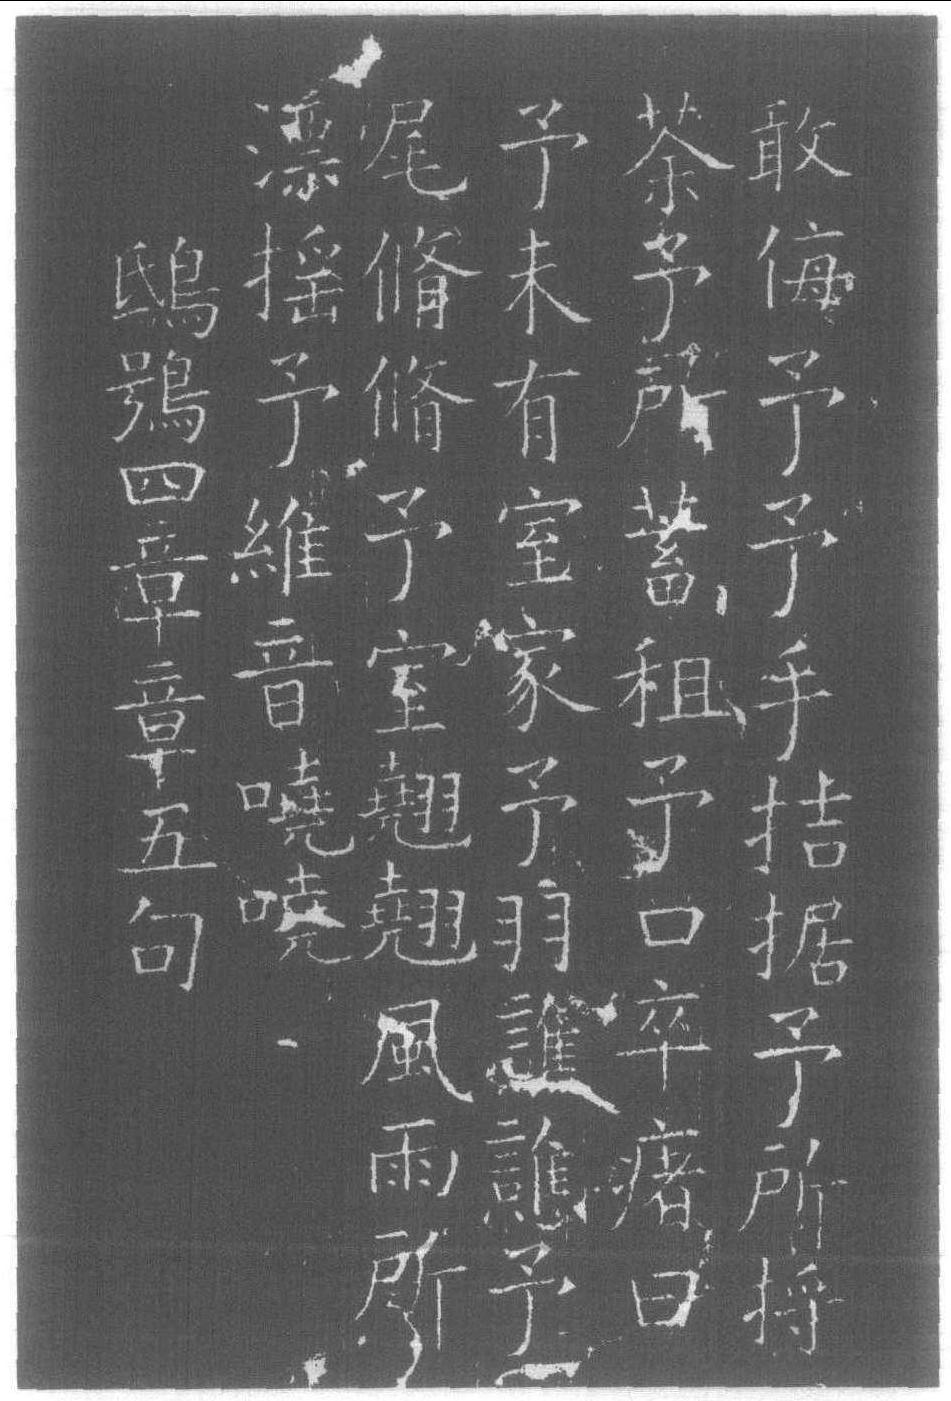 敢侮予予手拮据予所捋
荼予所蓄租予口卒瘏曰
予未有室家予羽譙譙予
尾脩脩予室翹翹風雨所
漂揺予維音嘵嘵
鴟鴞四章章五句